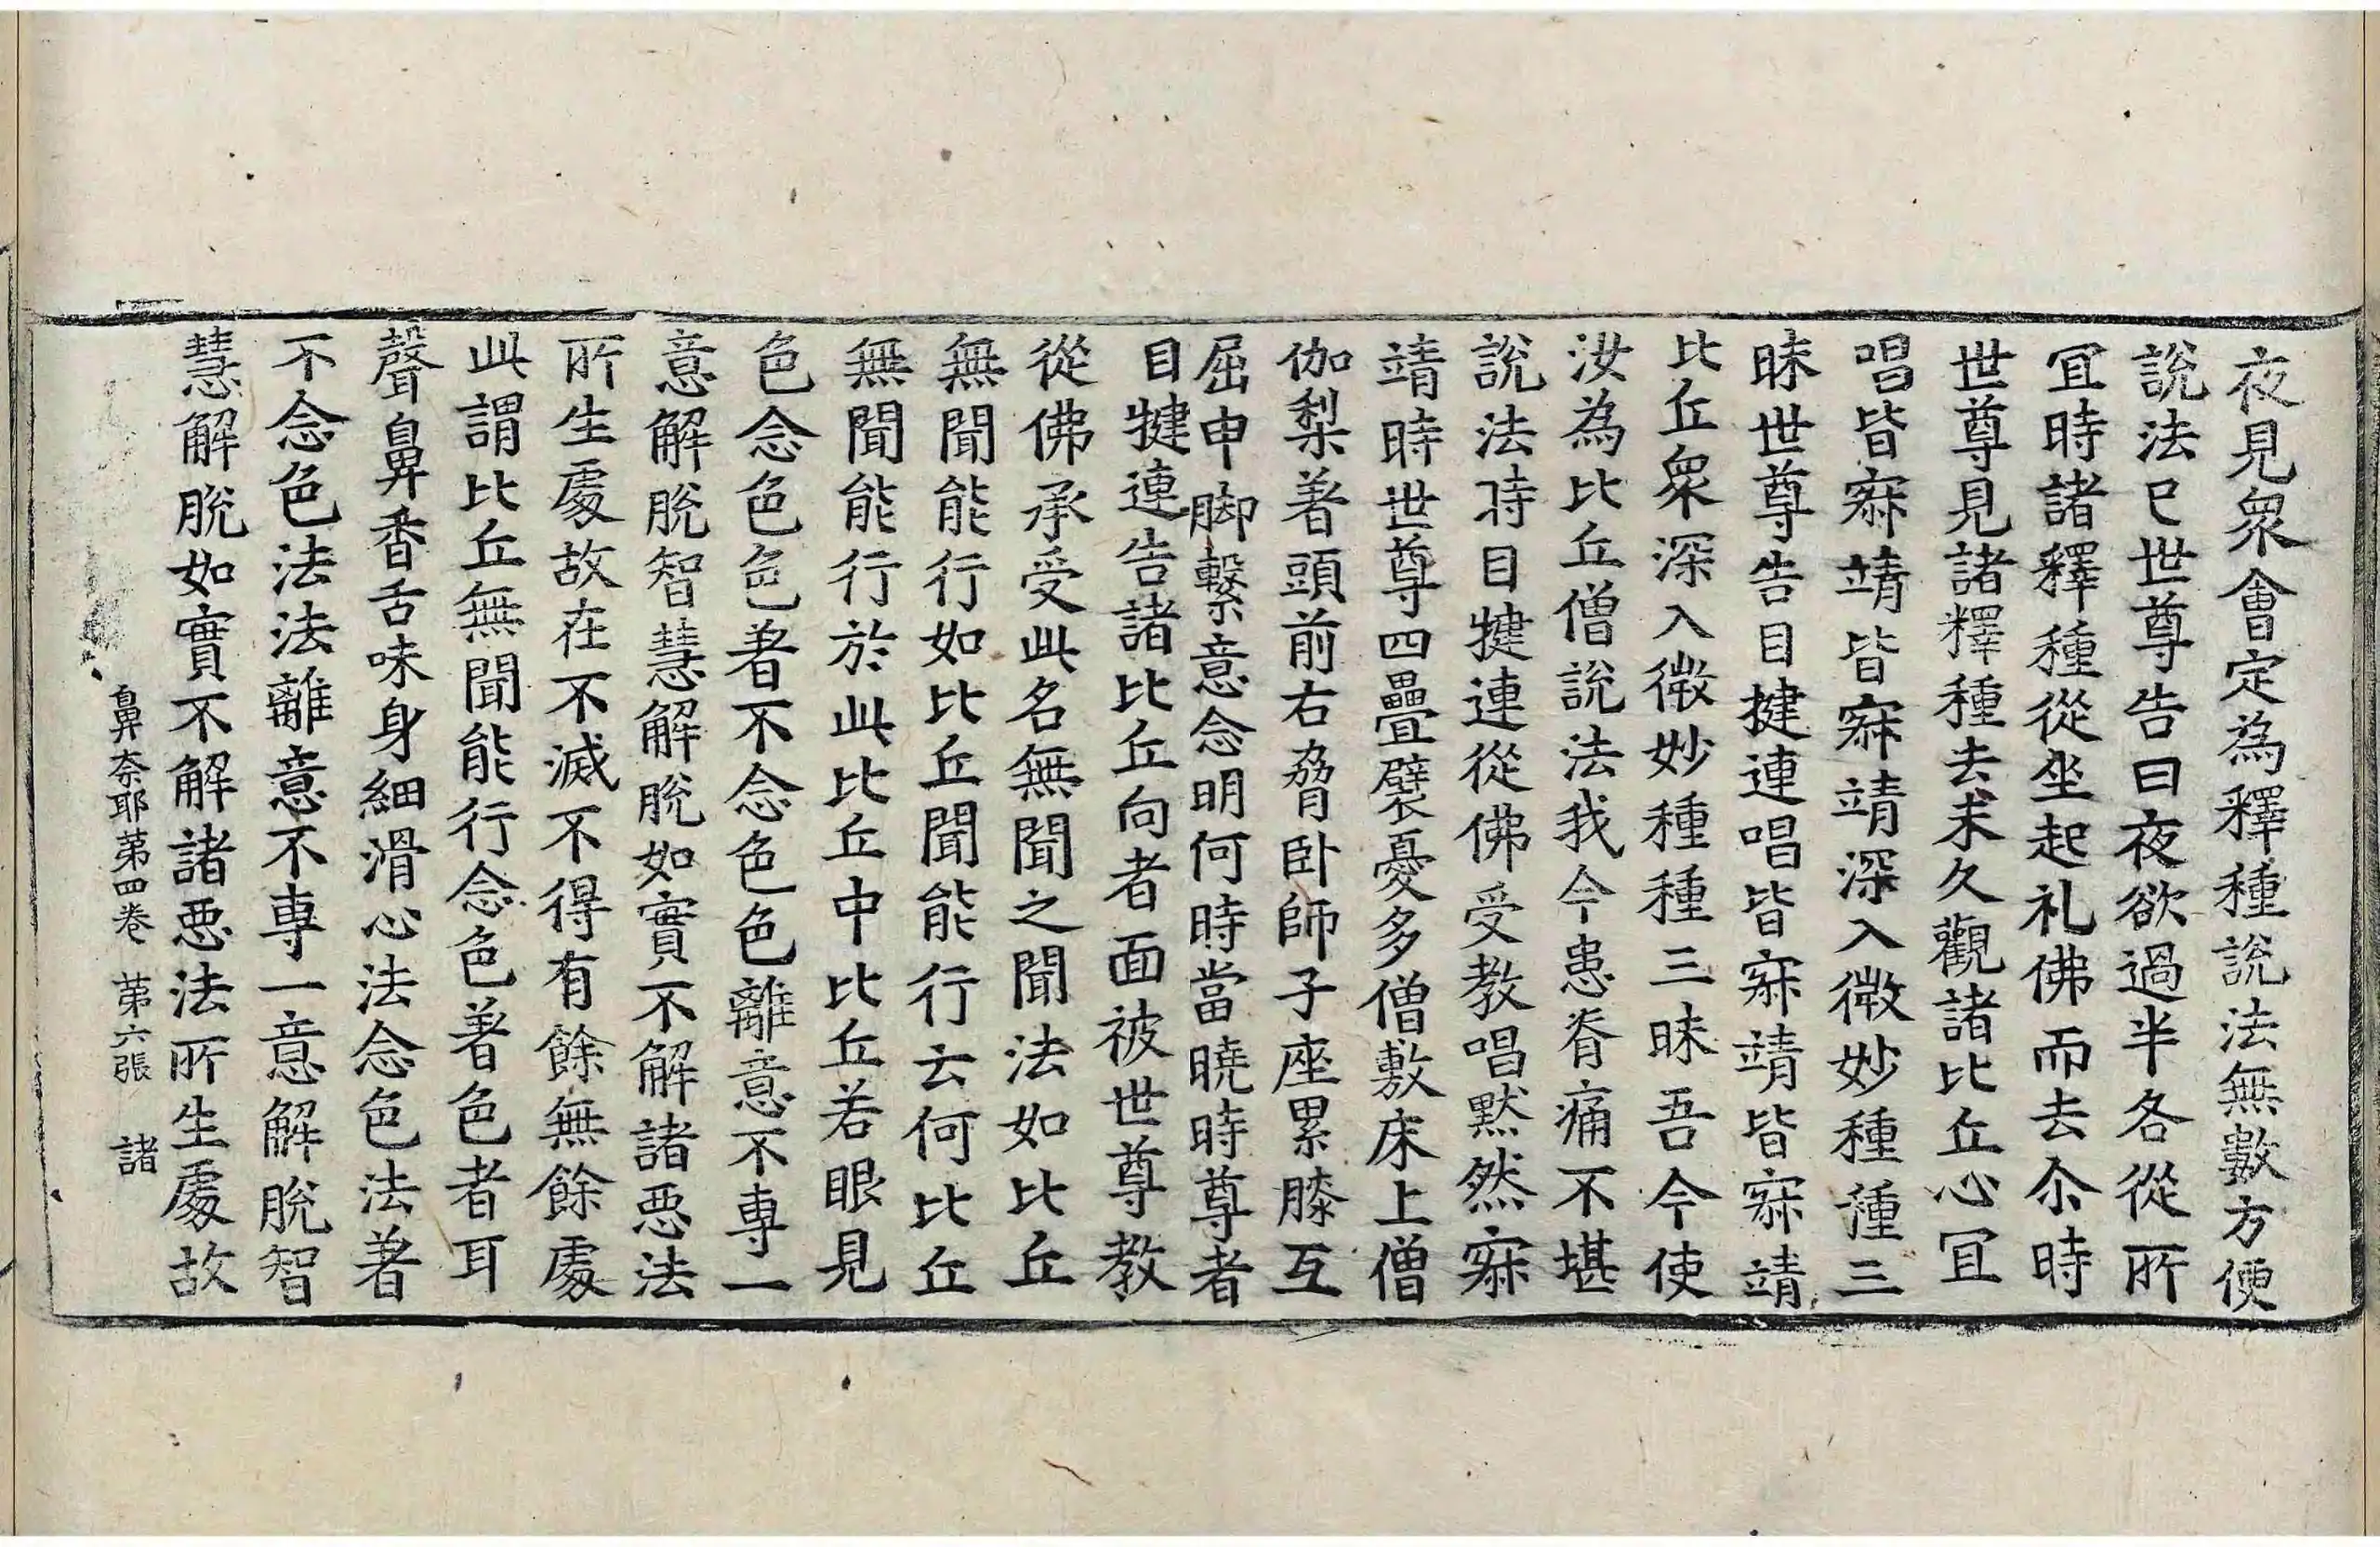 夜見衆會定為釋種說法無數方便
說法已世尊告曰夜欲過半各從所
冝時諸釋種從坐起礼佛而去尒時
世尊見諸釋種去未久觀諸比丘心冝
唱皆寐靖皆寐靖深入微妙種種三
昧世尊告目揵連唱皆寐靖皆寐靖
比丘衆深入微妙種種三昧吾今使
汝為比丘僧說法我今患脊痛不堪
說法時目犍連從佛受教唱黙然寐
靖時世尊四疊襞憂多僧敷床上僧
伽梨著頭前右脅卧師子座累膝互
屈申脚繫意念明何時當曉時尊者
目犍連告諸比丘向者面被世尊教
從佛承受此名無聞之聞法如比丘
無聞能行如比丘聞能行云何比丘
無聞能行於此比丘中比丘若眼見
色念色色著不念色色離意不專一
意解脫智慧解脫如實不解諸惡法
所生處故在不滅不得有餘無餘處
此謂比丘無聞能行念色著色者耳
聲鼻香舌味身細滑心法念色法著
不念色法法離意不專一意解脫智
慧解脫如實不解諸惡法所生處故
鼻奈耶苐四卷 苐六張 諸